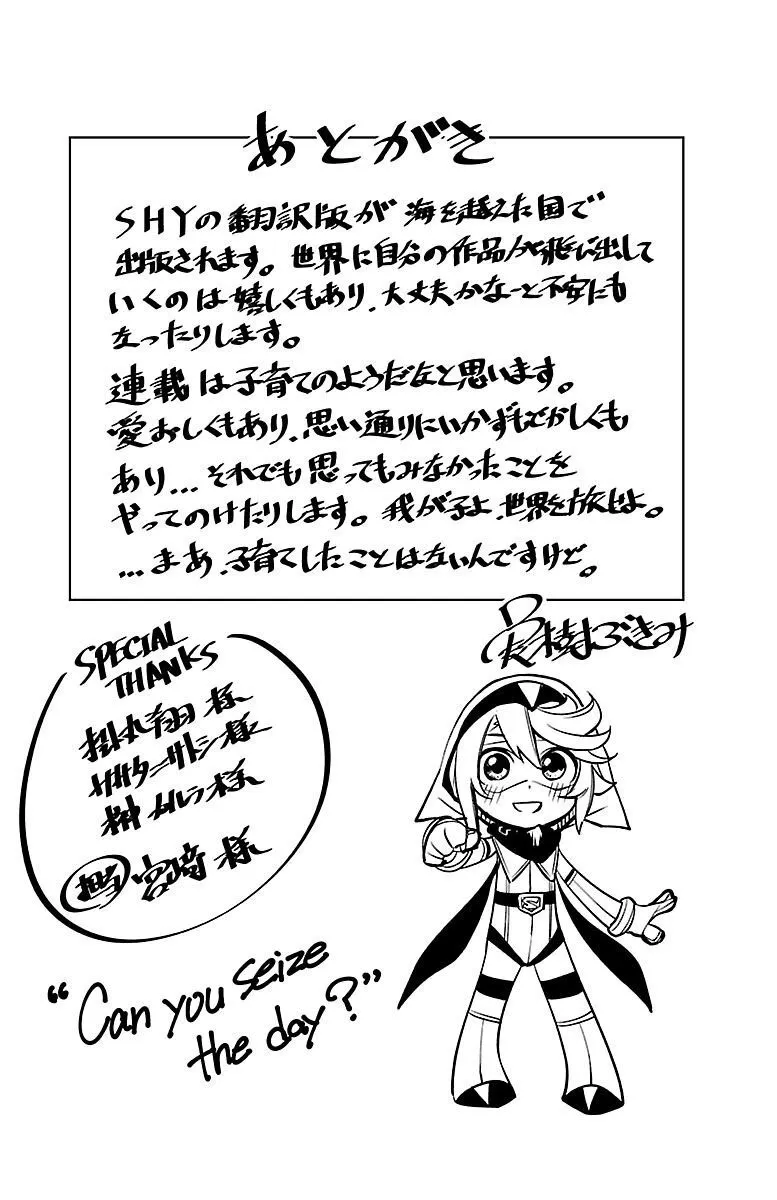 あとがき
SHYの翻訳版が海を越えた国で
出版されます。世界に自分の作品が飛び出して
いくのは嬉しくもあり、大丈夫かなーと不安にも
なったりします。
連載は子育てのようだなと思います。
愛おしくもあり、思い通りにいかずもどかしくも
あり…それでも思ってもみなかったことを
やってのけたりします。我が子よ、世界を旅せよ。
…まあ、子育てしたことはないんですけど。
実樹ぶきみ
SPECIAL
THANKS
掛丸翔様
サトシ様
榊様
担当 宮崎様
"Can you seize
the day?"
S